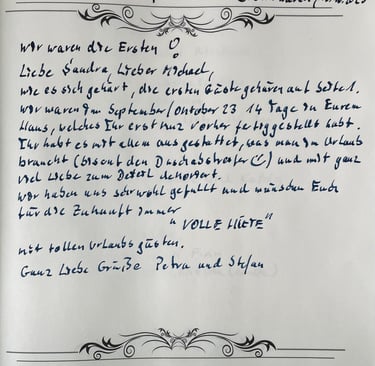 Wir waren die Ersten!
Liebe Sandra, Lieber Michael,
wie es sich gehört, die ersten Gäste gehören auf Seite 1.
Wir waren im September/Oktober 23 14 Tage in Eurem
Haus, welches Ihr erst kurz vorher fertiggestellt habt.
Ihr habt es mit allem ausgestattet, was man im Urlaub
braucht (bis auf den Duschabstreifer) und mit ganz
viel Liebe zum Detail dekoriert.
Wir haben uns sehr wohl gefühlt und wünschen Euch
für die Zukunft immer
"VOLLE HÜTTE"
mit tollen Urlaubsgästen.
Ganz Liebe Grüße Petra und Stefan